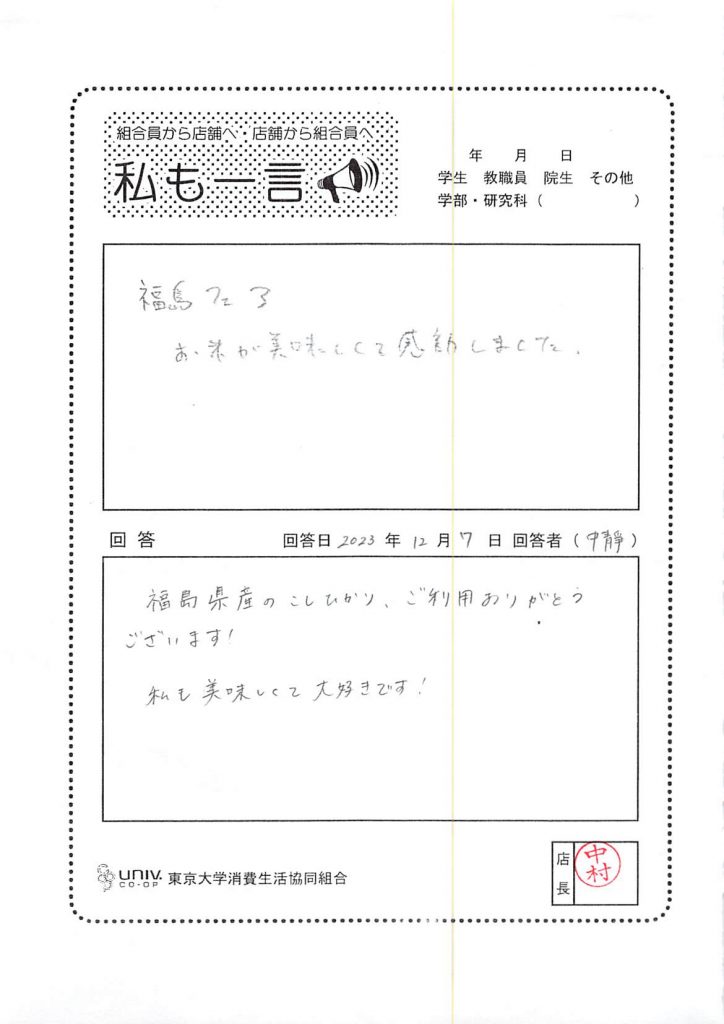 組合員から店舗へ・店舗から組合員へ
私も一言
年 月 日
学生 教職員 院生 その他
学部・研究科（ ）
福島フェア
お米が美味しくて感動しました。
回答 回答日 2023 年 12 月 7 日 回答者（中靜）
福島県産のこしひかり、ご利用ありがとう
ございます！
私も美味しくて大好きです！
UNIV.
CO-OP
東京大学消費生活協同組合
店長
中村